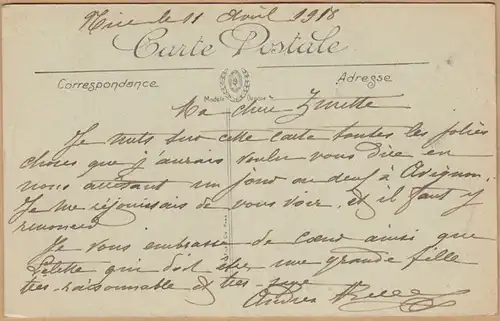 Nice le 11 Avril 1918
Carte Postale
Correspondance
Adresse
Ma chère
Je mets sur cette carte toutes les jolies
choses que j'aurais voulu vous dire en
nous arrêtant un jour ou deux à Avignon.
Je me réjouissais de vous voir, et il faut y
renoncer
Je vous embrasse de cœur ainsi que
qui doit être une grande fille
très-raisonnable et très-sage
Andrée